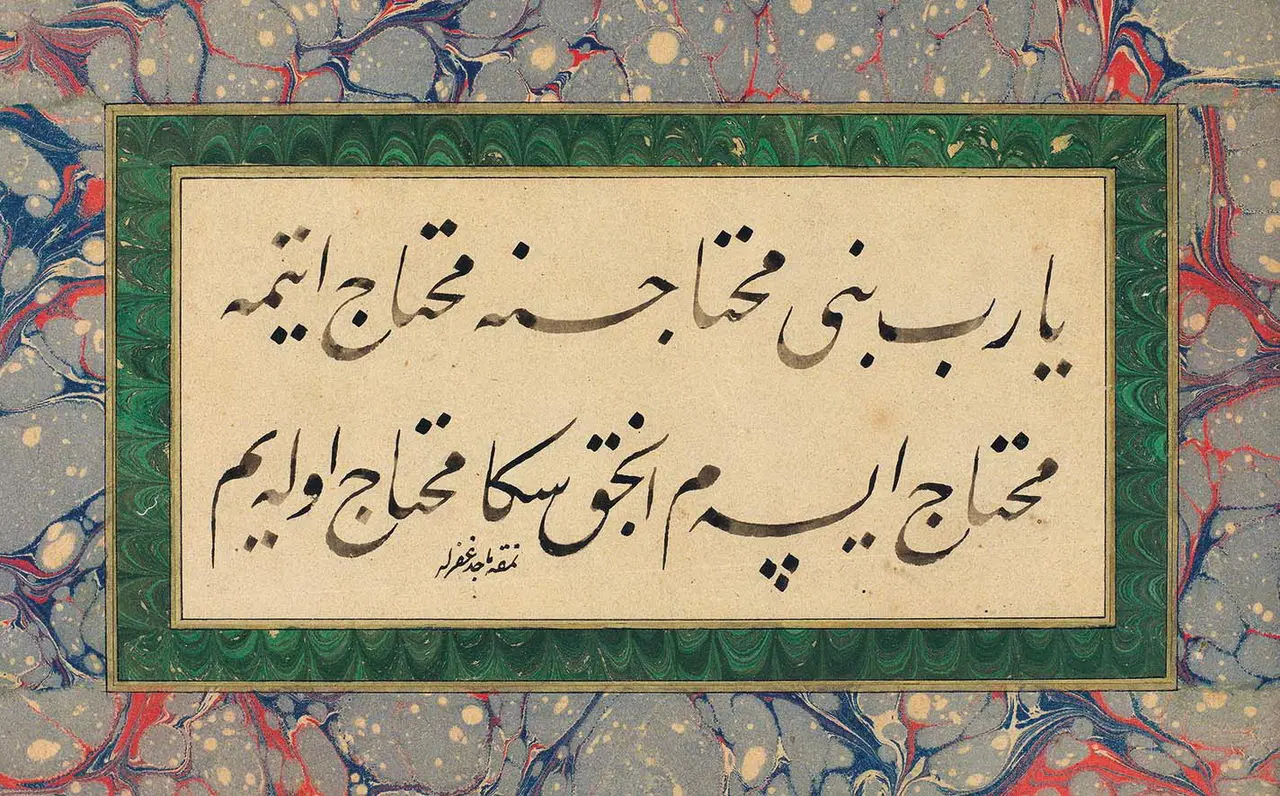 یا رب بنی محتاجنه محتاج ایتمه
محتاج ایسه م انجق سکا محتاج اوله یم
نمقه ماجد غفرله